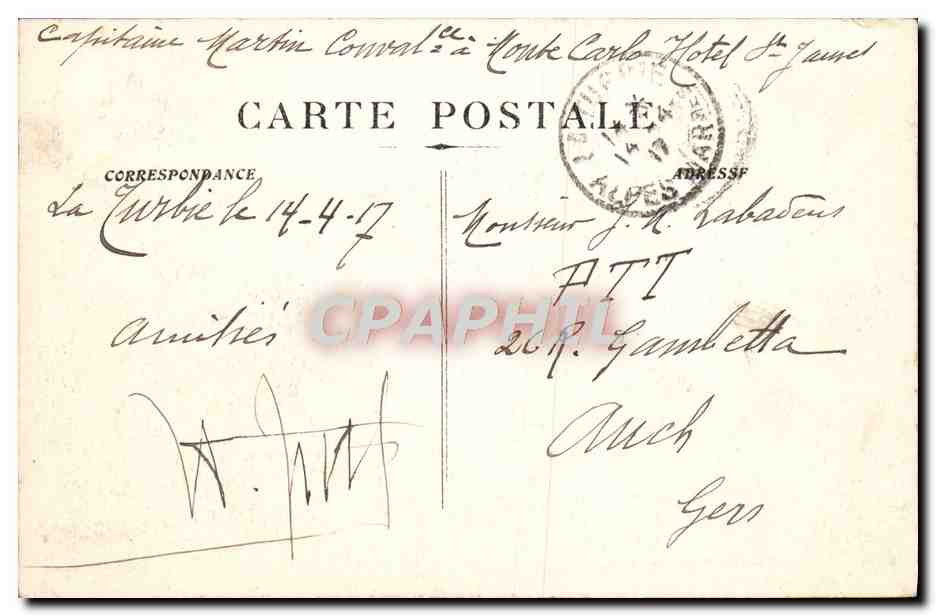 Capitaine Martin Conval ce à Monte Carlo Hotel St James
CARTE POSTALE
LA TURBIE
14 -4
17
ALPES MARMES
CORRESPONDANCE
ADRESSE
La Turbie le 14-4-17
Monsieur J. M. Labadens
PTT
Amitiés
26 R. Gambetta
Auch
Gers
CPAPHIL